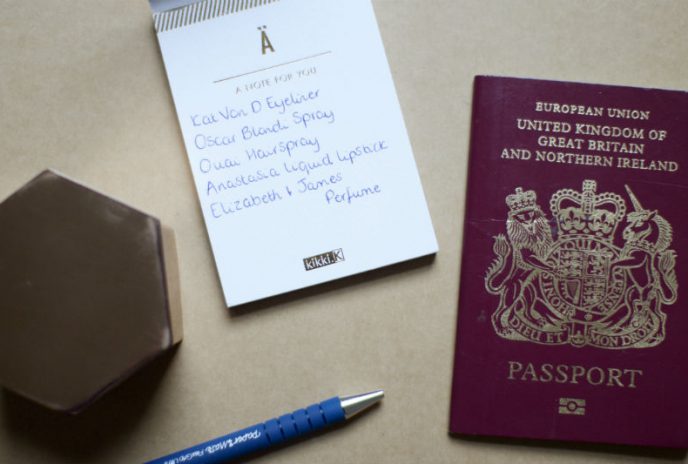 Ä
A NOTE FOR YOU
Kat Von D Eyeliner
Oscar Blandi Spray
Ouai Hairspray
Anastasia Liquid Lipstick
Elizabeth & James
Perfume
kikki.K
EUROPEAN UNION
UNITED KINGDOM OF
GREAT BRITAIN
AND NORTHERN IRELAND
DIEU ET MON DROIT
PASSPORT
PAPER:MATE